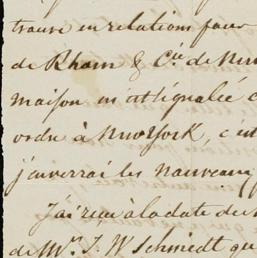 trouve en relations pour
de Rham & Cie. de New
maison m'a signalée
ordre à New York, c'est
j'enverrai les nouveaux
J'ai reçu à la date du
de Mr. J. W Schmidt qu